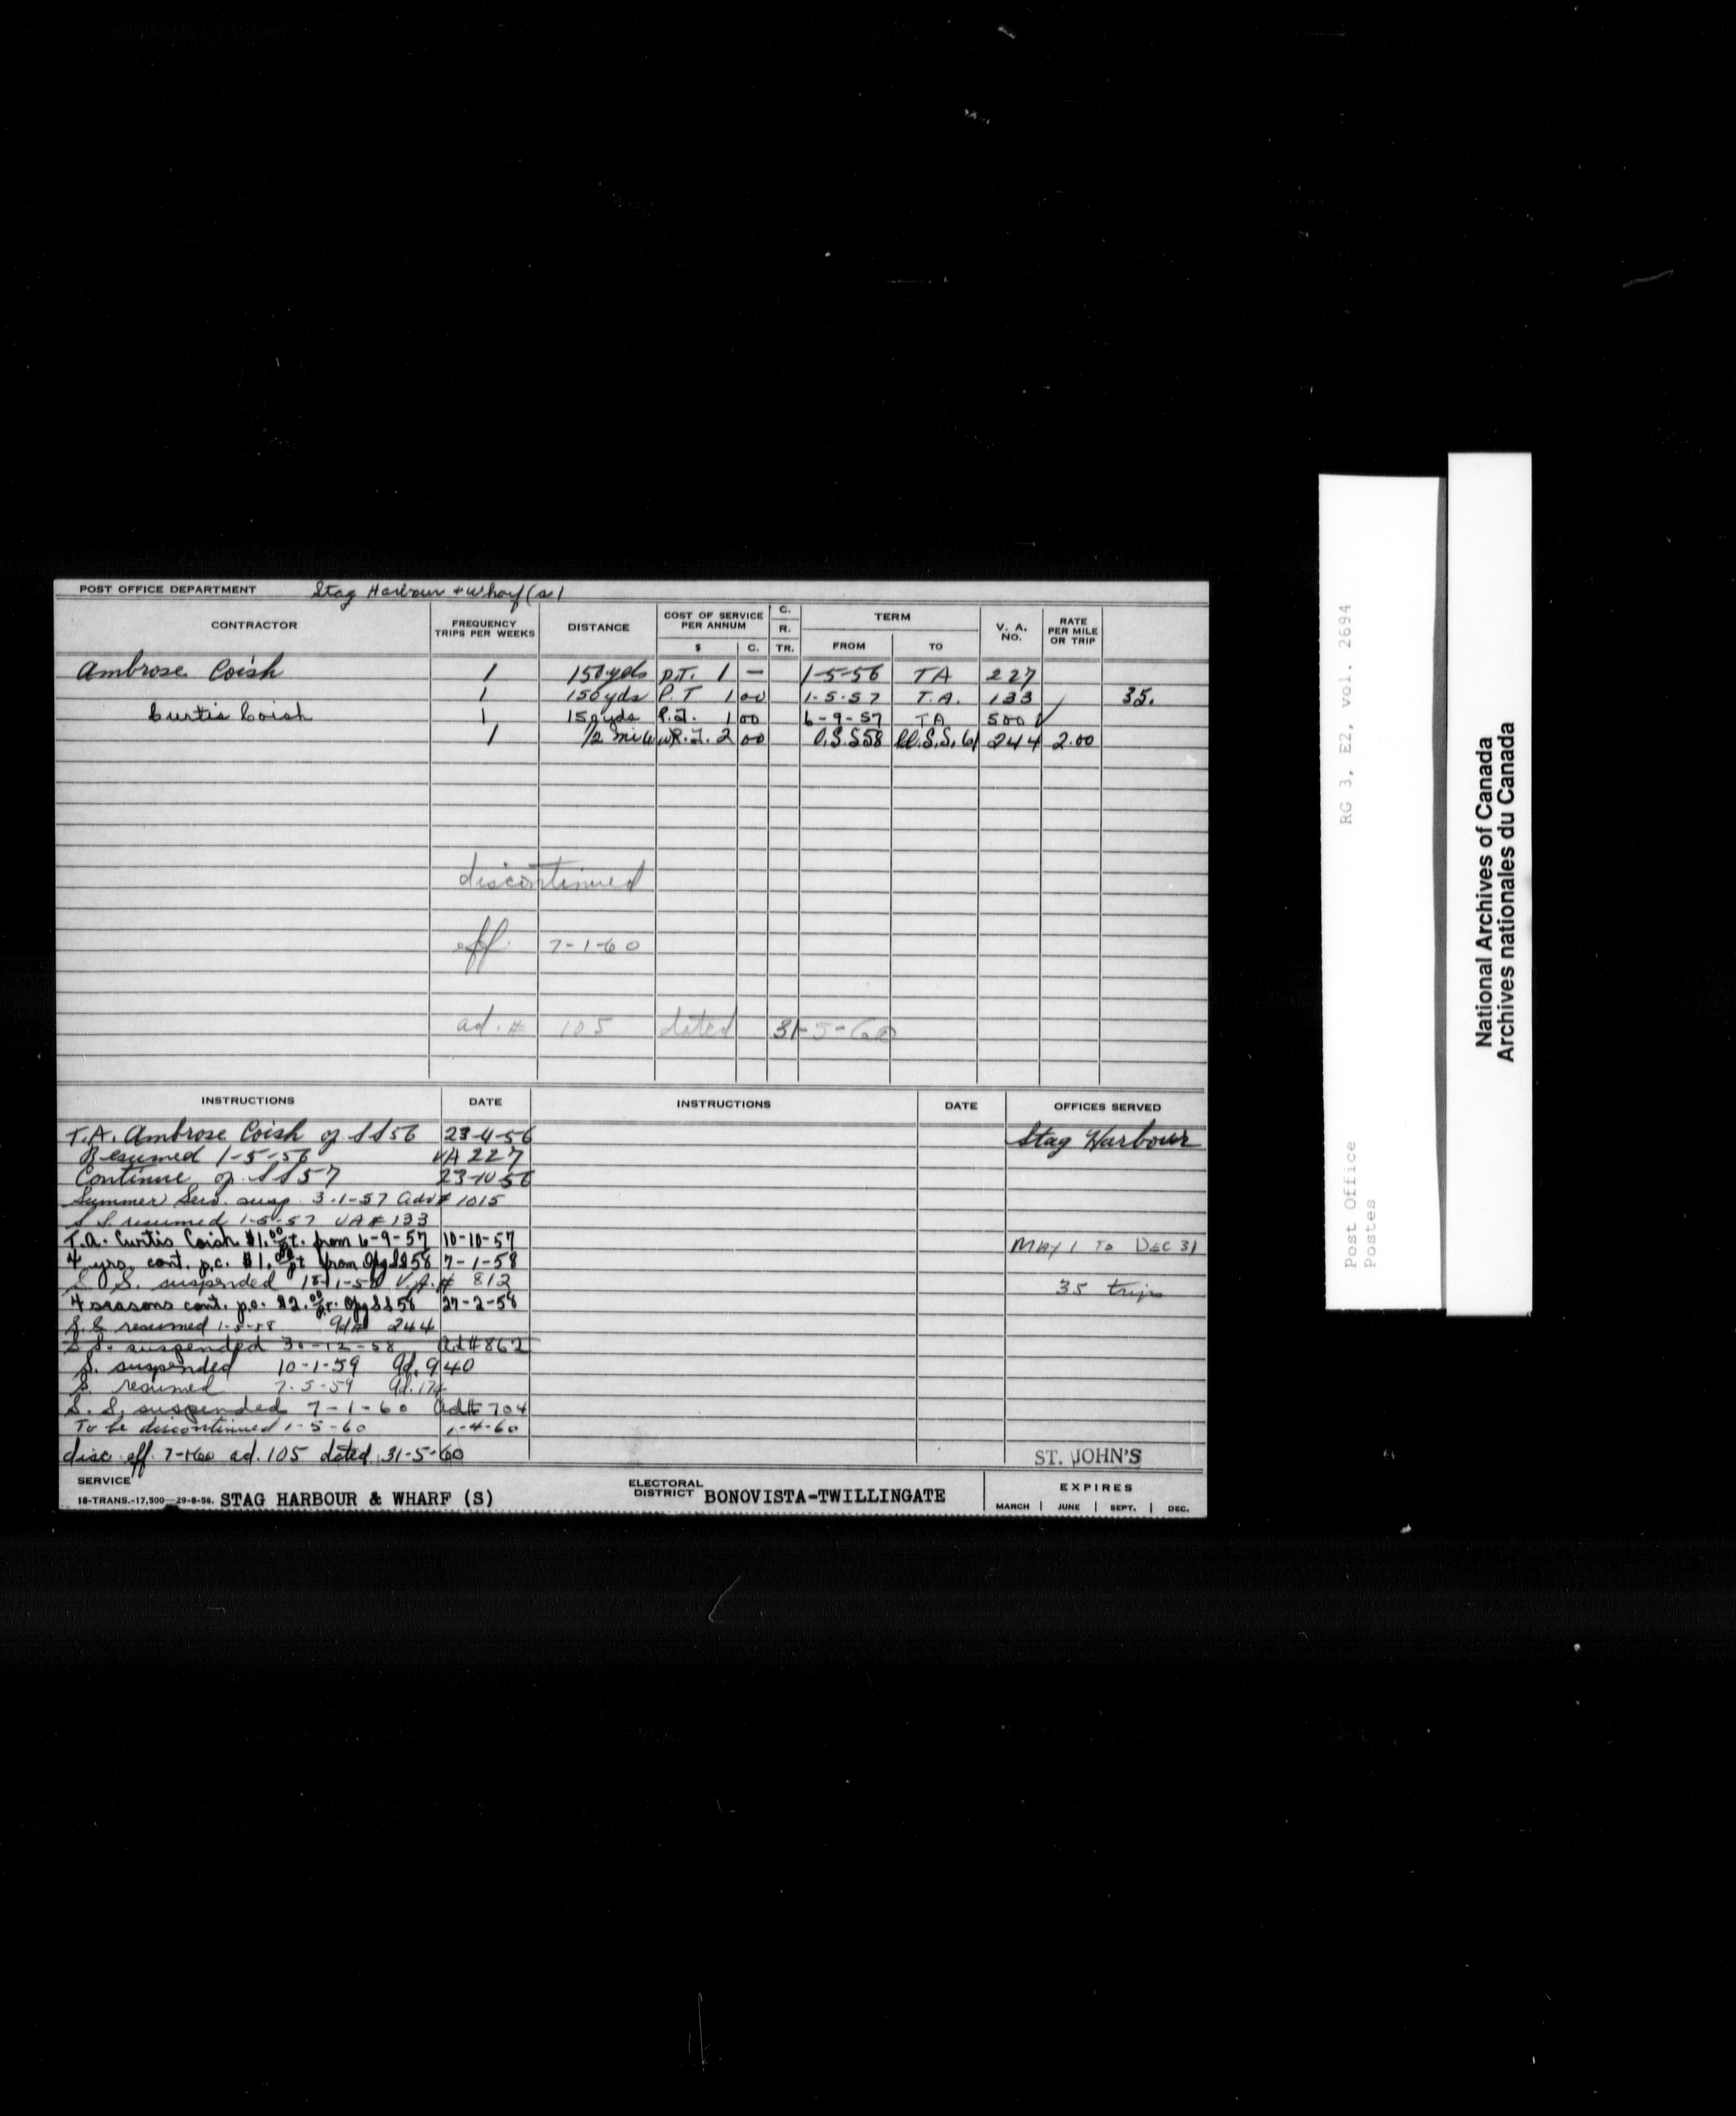 POST OFFICE DEPARTMENT Stag Harbour & Wharf (s)
CONTRACTOR FREQUENCY TRIPS PER WEEKS DISTANCE COST OF SERVICE PER ANNUM $ C. C. R. TR. TERM FROM TO V. A. NO. RATE PER MILE OR TRIP
Ambrose Coish 1 150 yds P.T. 1 — 1-5-56 TA 227
1 150 yds P.T 1 00 1-5-57 T.A. 133 35.
Curtis Coish 1 150 yds P.T. 1 00 6-9-57 TA 500
1 1/2 mile P.T. 2 00 O.S.S58 Cl.S.S. 61 244 2.00
discontinued
eff. 7-1-60
ad. # 105 dated 31-5-60
INSTRUCTIONS DATE INSTRUCTIONS DATE OFFICES SERVED
T.A. Ambrose Coish of SS56 23-4-56 Stag Harbour
Resumed 1-5-56 VA 227
Continue of SS57 23-10-56
Summer Serv. susp. 3-1-57 Adv# 1015
S S. resumed 1-5-57 VA# 133
T.A. Curtis Coish $1.00 pt. from 6-9-57 10-10-57 MAY 1 TO DEC 31
4 yrs. cont. p.c. $1.00 pt from Opg SS58 7-1-58
S. S. suspended 1-58 V.A.# 812 35 trips
4 seasons cont. p.c. $2.00 Opg SS58 27-2-58
S.S resumed 1-5-58 Ad# 244
S S. suspended 30-12-58 Ad#862
S. suspended 10-1-59 Ad. 940
S. resumed 7-5-59 Ad. 174
S. S. suspended 7-1-60 Ad# 704
To be discontinued 1-5-60 1-4-60
disc. eff. 7-1-60 ad. 105 dated 31-5-60 ST. JOHN'S
SERVICE ELECTORAL DISTRICT EXPIRES
18-TRANS.-17,500—29-8-56. STAG HARBOUR & WHARF (S) BONOVISTA-TWILLINGATE MARCH | JUNE | SEPT. | DEC.
RG 3, E2, vol. 2694
Post Office
Postes
National Archives of Canada
Archives nationales du Canada